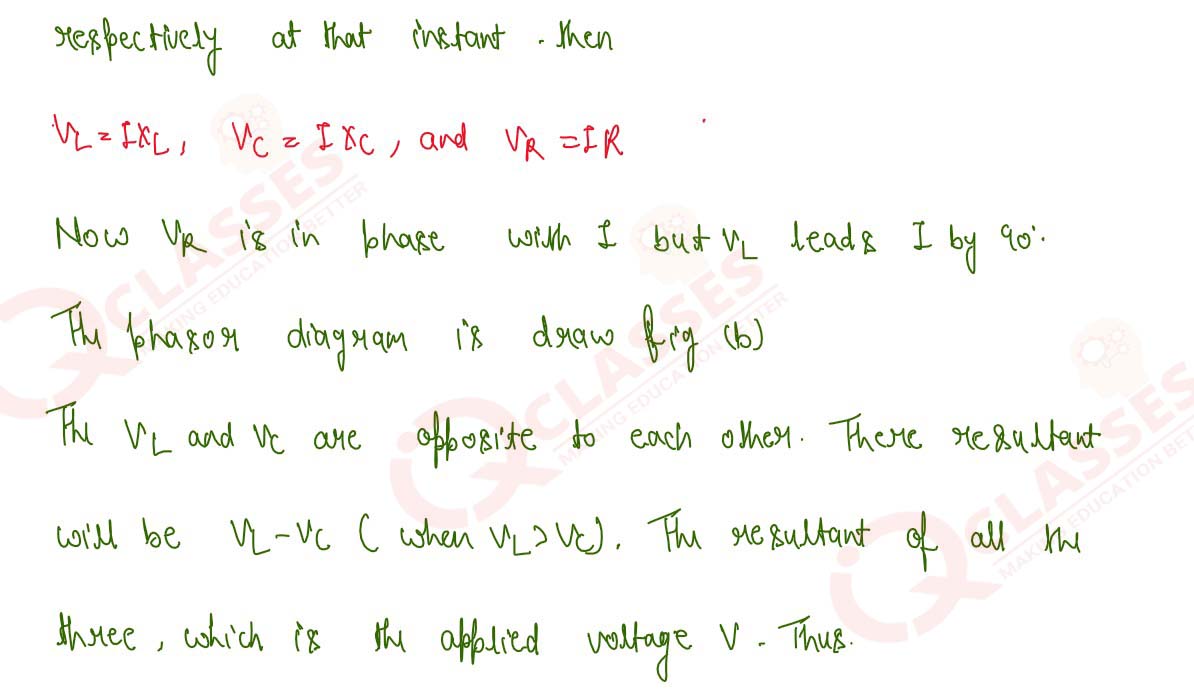 respectively at that instant . then
VL = IXL, VC = IXC, and VR = IR
Now VR is in phase with I but VL leads I by 90°.
The phasor diagram is draw fig (b)
The VL and VC are opposite to each other. There resultant
will be VL - VC ( when VL > VC). The resultant of all the
three, which is the applied voltage V. Thus.
IQ CLASSES
MAKING EDUCATION BETTER
IQ CLASSES
MAKING EDUCATION BETTER
IQ CLASSES
MAKING EDUCATION BE